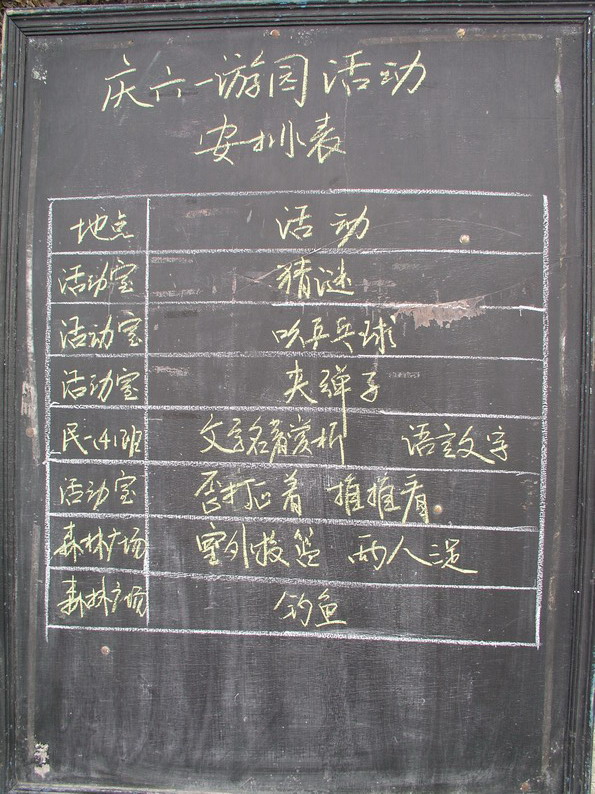 庆六一游园活动
安排表
地点 活动
活动室 猜谜
活动室 吹乒乓球
活动室 夹弹子
民一(4)班 文学名著赏析 语言文字
活动室 歪打正着 推推看
森林广场 室外投篮 两人三足
森林广场 钓鱼